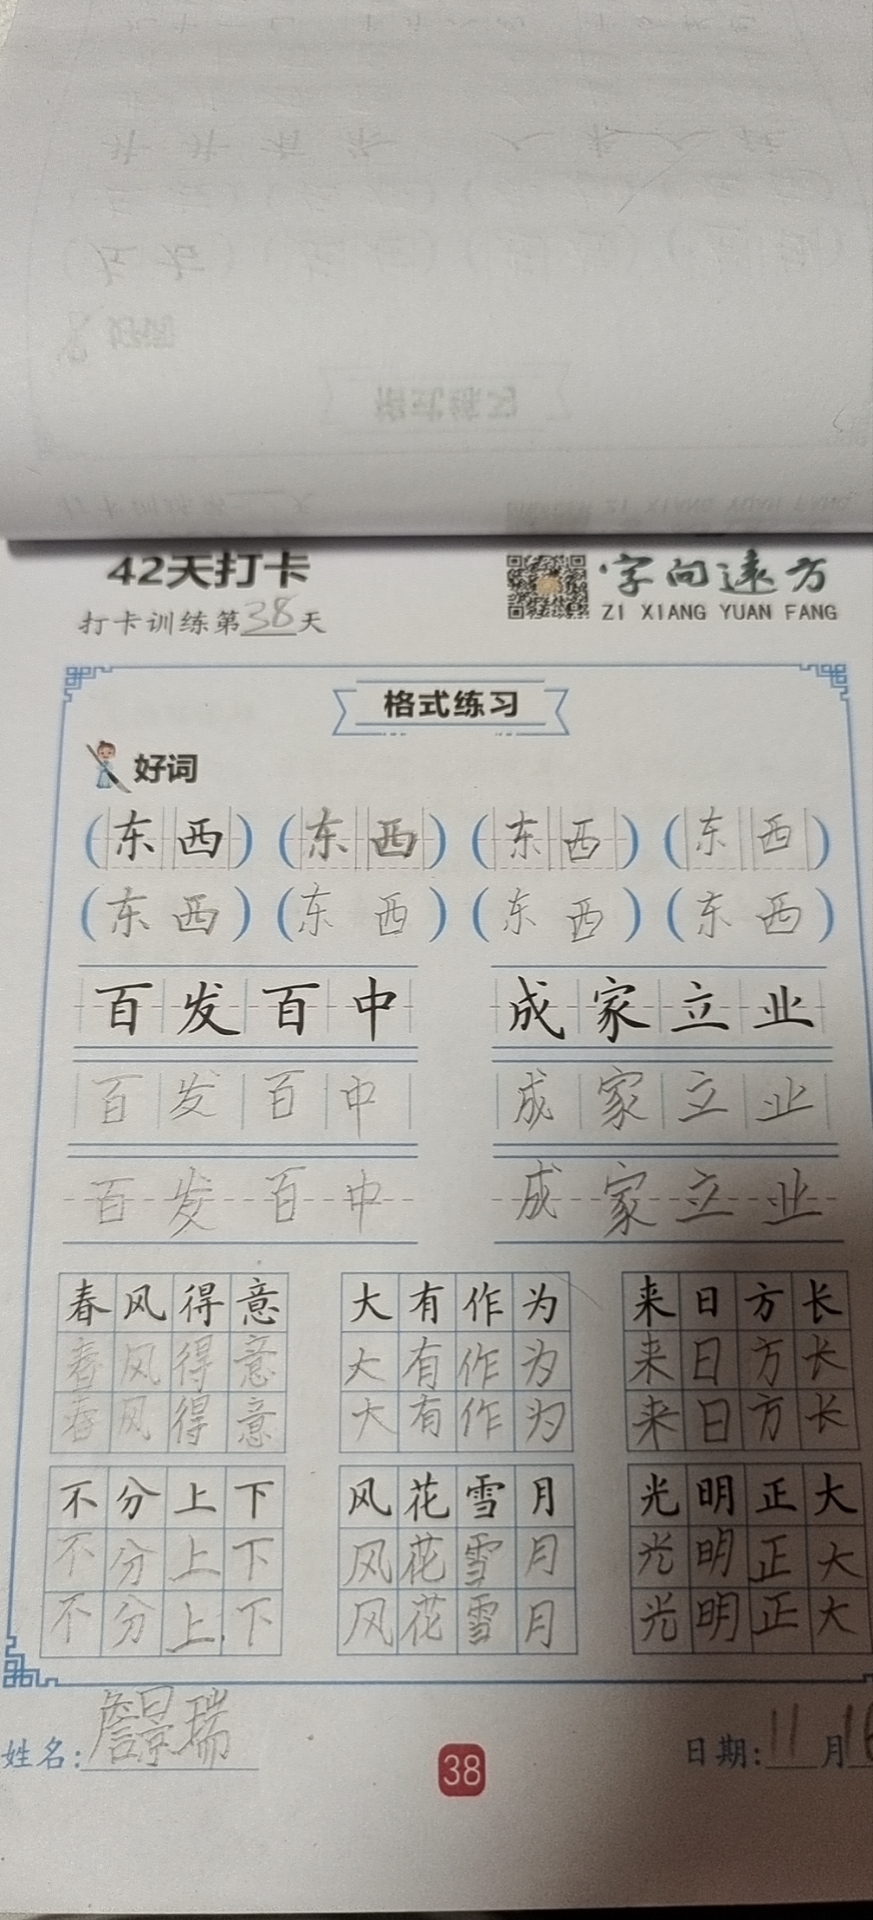 42天打卡
字向远方
打卡训练第38天
ZI XIANG YUAN FANG
格式练习
好词
(东西) (东西) (东西) (东西)
(东西) (东西) (东西) (东西)
百发百中 成家立业
百发百中 成家立业
百发百中 成家立业
春风得意 大有作为 来日方长
春风得意 大有作为 来日方长
春风得意 大有作为 来日方长
不分上下 风花雪月 光明正大
不分上下 风花雪月 光明正大
不分上下 风花雪月 光明正大
姓名:詹景瑞
38
日期:11月16